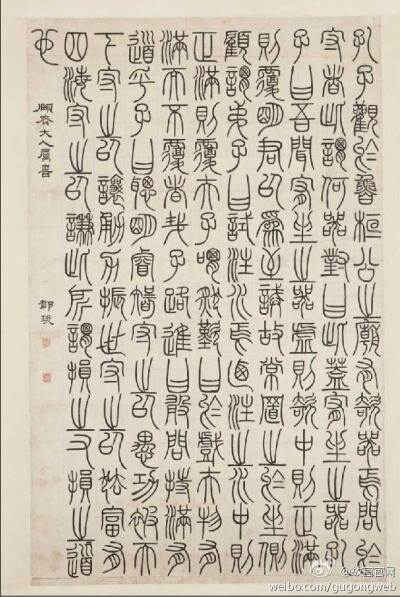 孔子觀於魯桓公之廟有欹器焉問於
守者此謂何器對曰此蓋宥坐之器孔
子曰吾聞宥坐之器虛則欹中則正滿
則覆明君以為至誡故常置之於坐側
顧謂弟子曰試注水焉乃注之水中則
正滿則覆夫子喟然歎曰於戲夫物有
滿而不覆者哉子路進曰敢問持滿有
道乎子曰聰明睿智守之以愚功被天
下守之以讓勇力振世守之以怯富有
四海守之以謙此所謂損之又損之道
也
齋大人屬書
鄧琰
@故宫官网
weibo.com/gugongweb